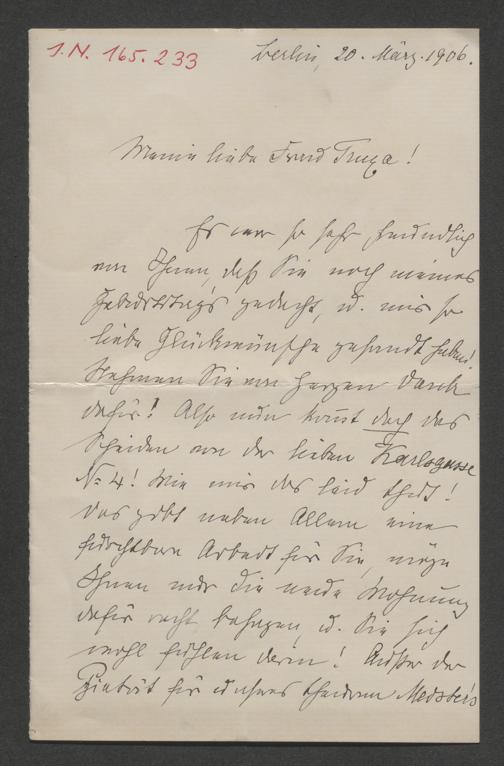 I.N. 165.233
Berlin, 20. März. 1906.
Meine liebe Frau Truxa!
Es war so sehr freundlich
von Ihnen, daß Sie noch meines
Geburtstag's gedacht, u. mir so
liebe Glückwünsche gesandt haben!
Nehmen Sie von Herzen Dank
dafür! Also nun kom̄t doch das
Scheiden von der lieben Karlsgasse
No 4! Wie mir das leid thut!
Das gibt neben Allem eine
furchtbare Arbeit für Sie, möge
Ihnen nur die neue Wohnung
dafür recht behagen, u. Sie sich
wohl fühlen darin! Außer der
Pietät für unseres theueren Meister's